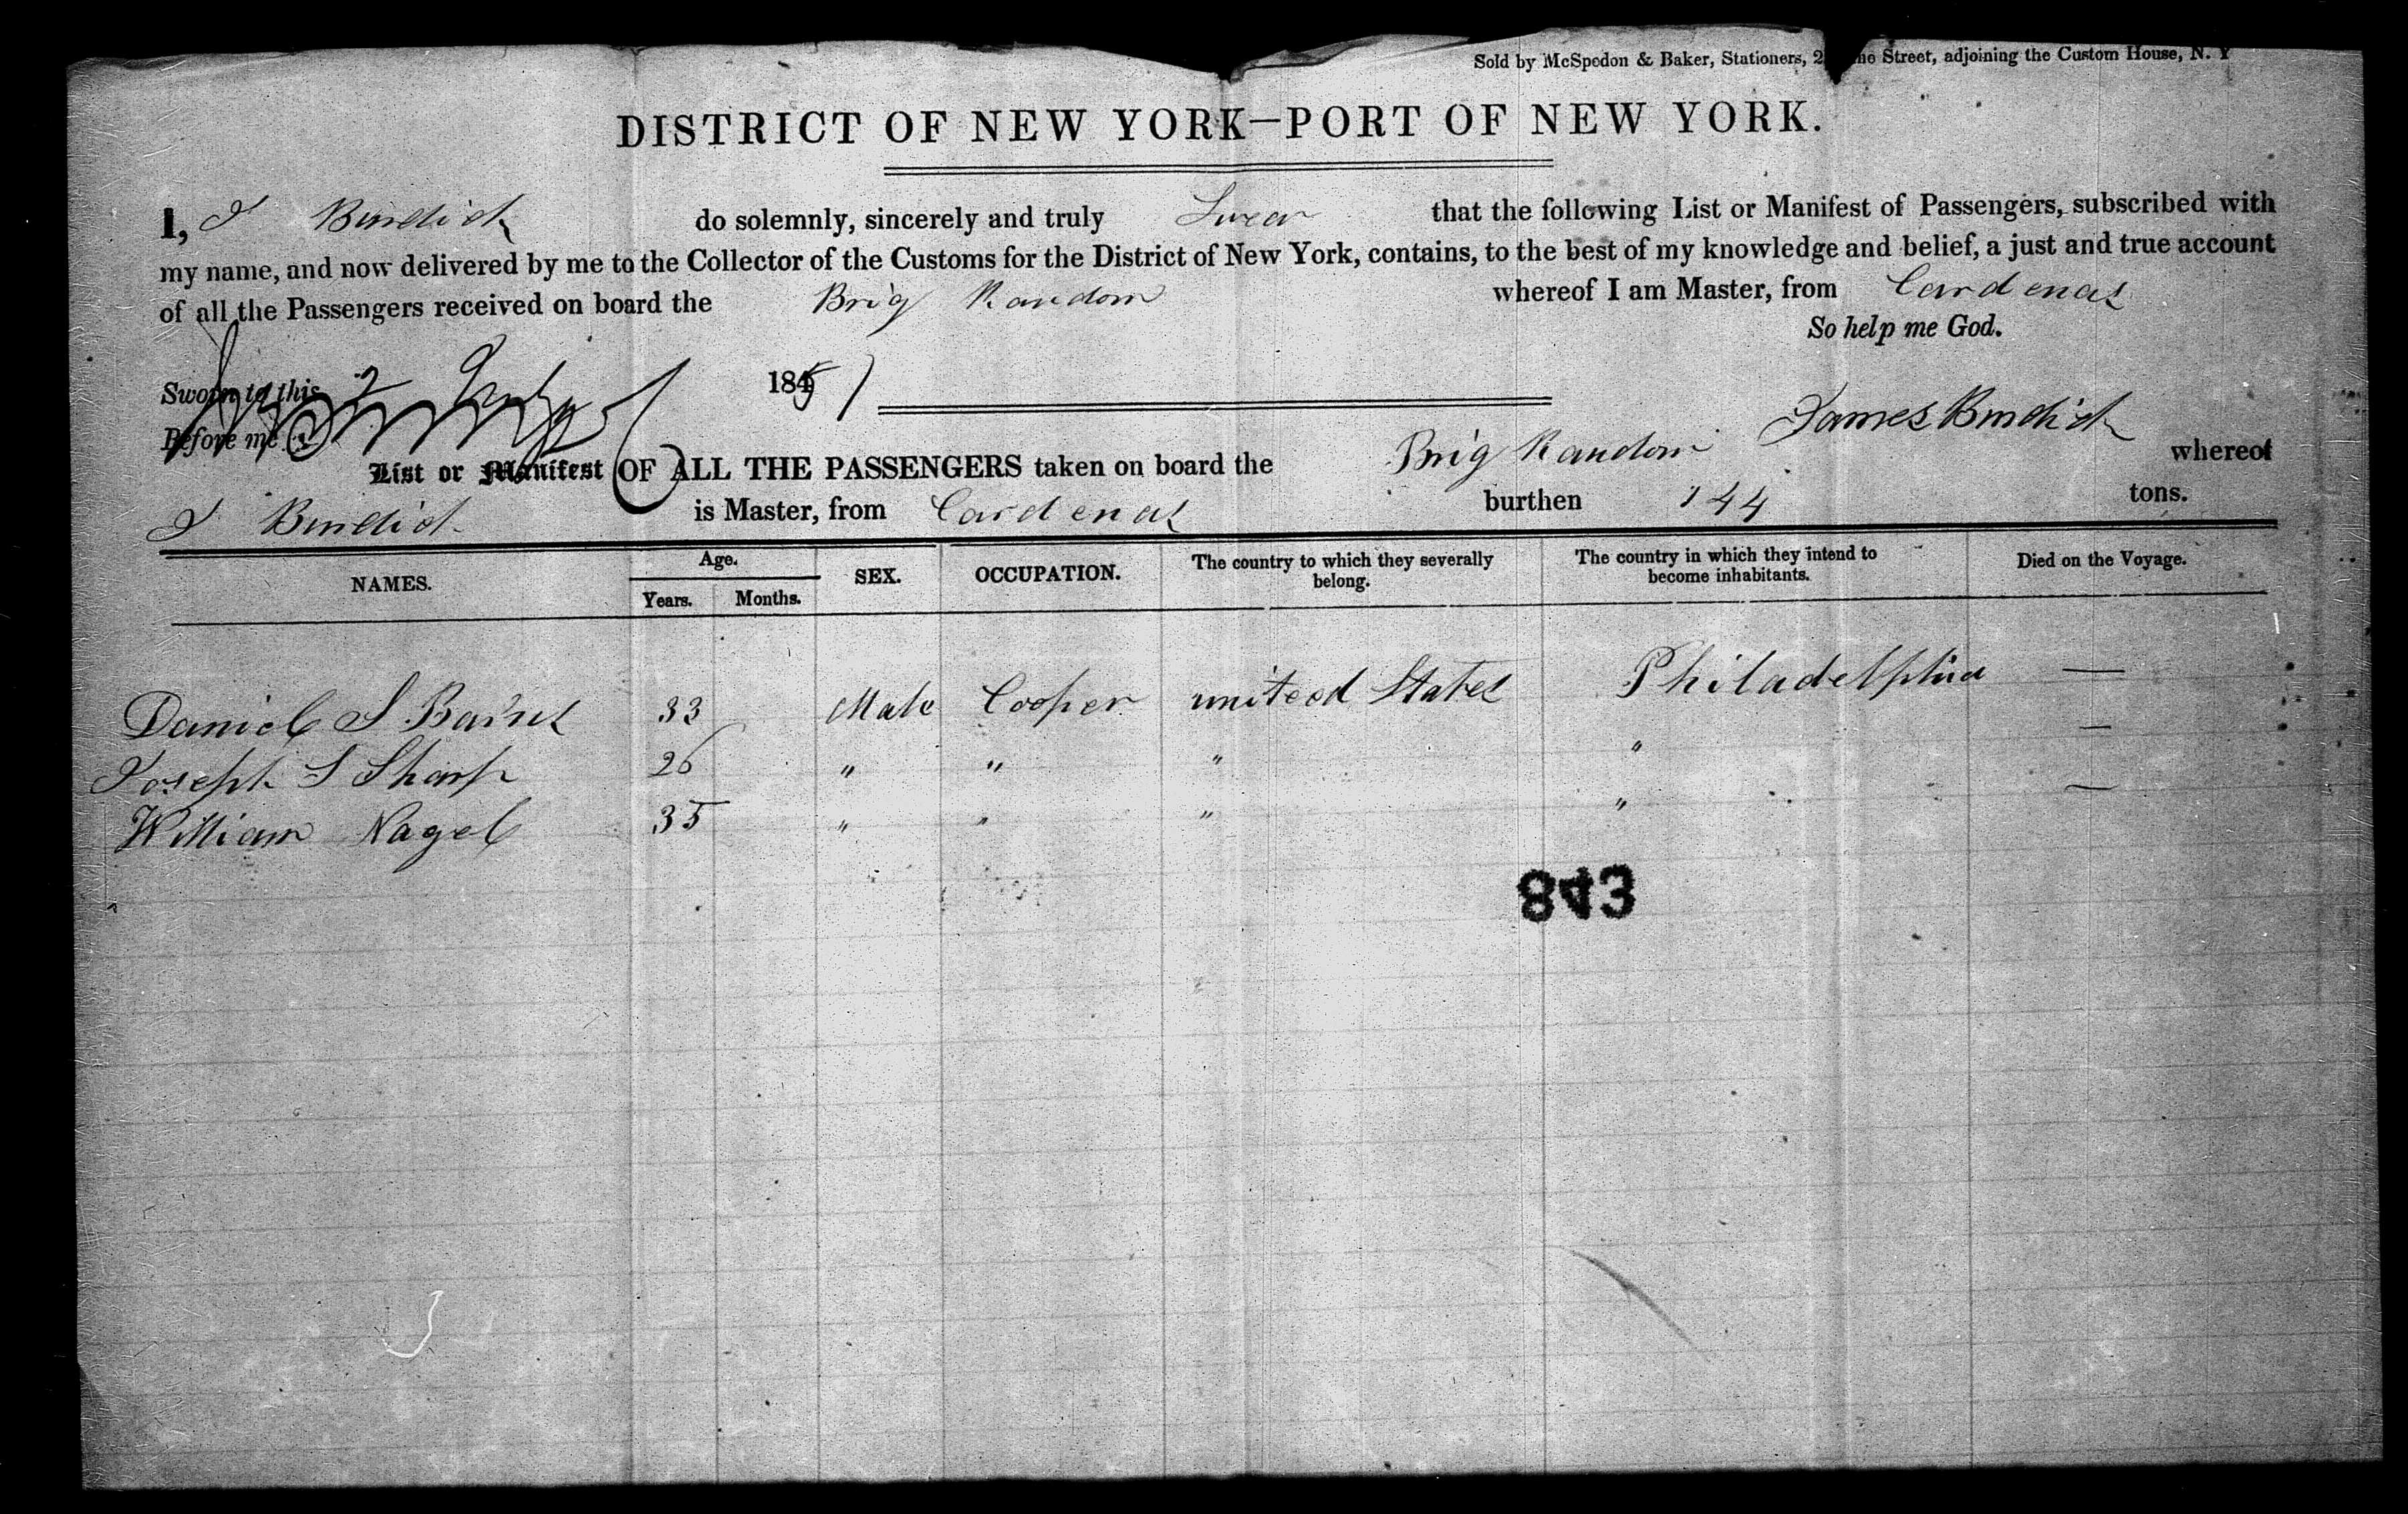 Sold by McSpedon & Baker, Stationers, 2 ne Street, adjoining the Custom House, N. Y
DISTRICT OF NEW YORK—PORT OF NEW YORK.
I, J Burdick do solemnly, sincerely and truly Swear that the following List or Manifest of Passengers, subscribed with
my name, and now delivered by me to the Collector of the Customs for the District of New York, contains, to the best of my knowledge and belief, a just and true account
of all the Passengers received on board the Brig Random whereof I am Master, from Cardenas
So help me God.
Sworn to this 2 July 1851
Before me
James Burdick
List or Manifest OF ALL THE PASSENGERS taken on board the Brig Random whereof
J Burdick is Master, from Cardenas burthen 144 tons.
NAMES. Age. Years. Months. SEX. OCCUPATION. The country to which they severally belong. The country in which they intend to become inhabitants. Died on the Voyage.
Daniel S. 33 Male Cooper united States Philadelphia —
Joseph S Sharp 26 " " " " —
William Nagel 35 " " " " —
843